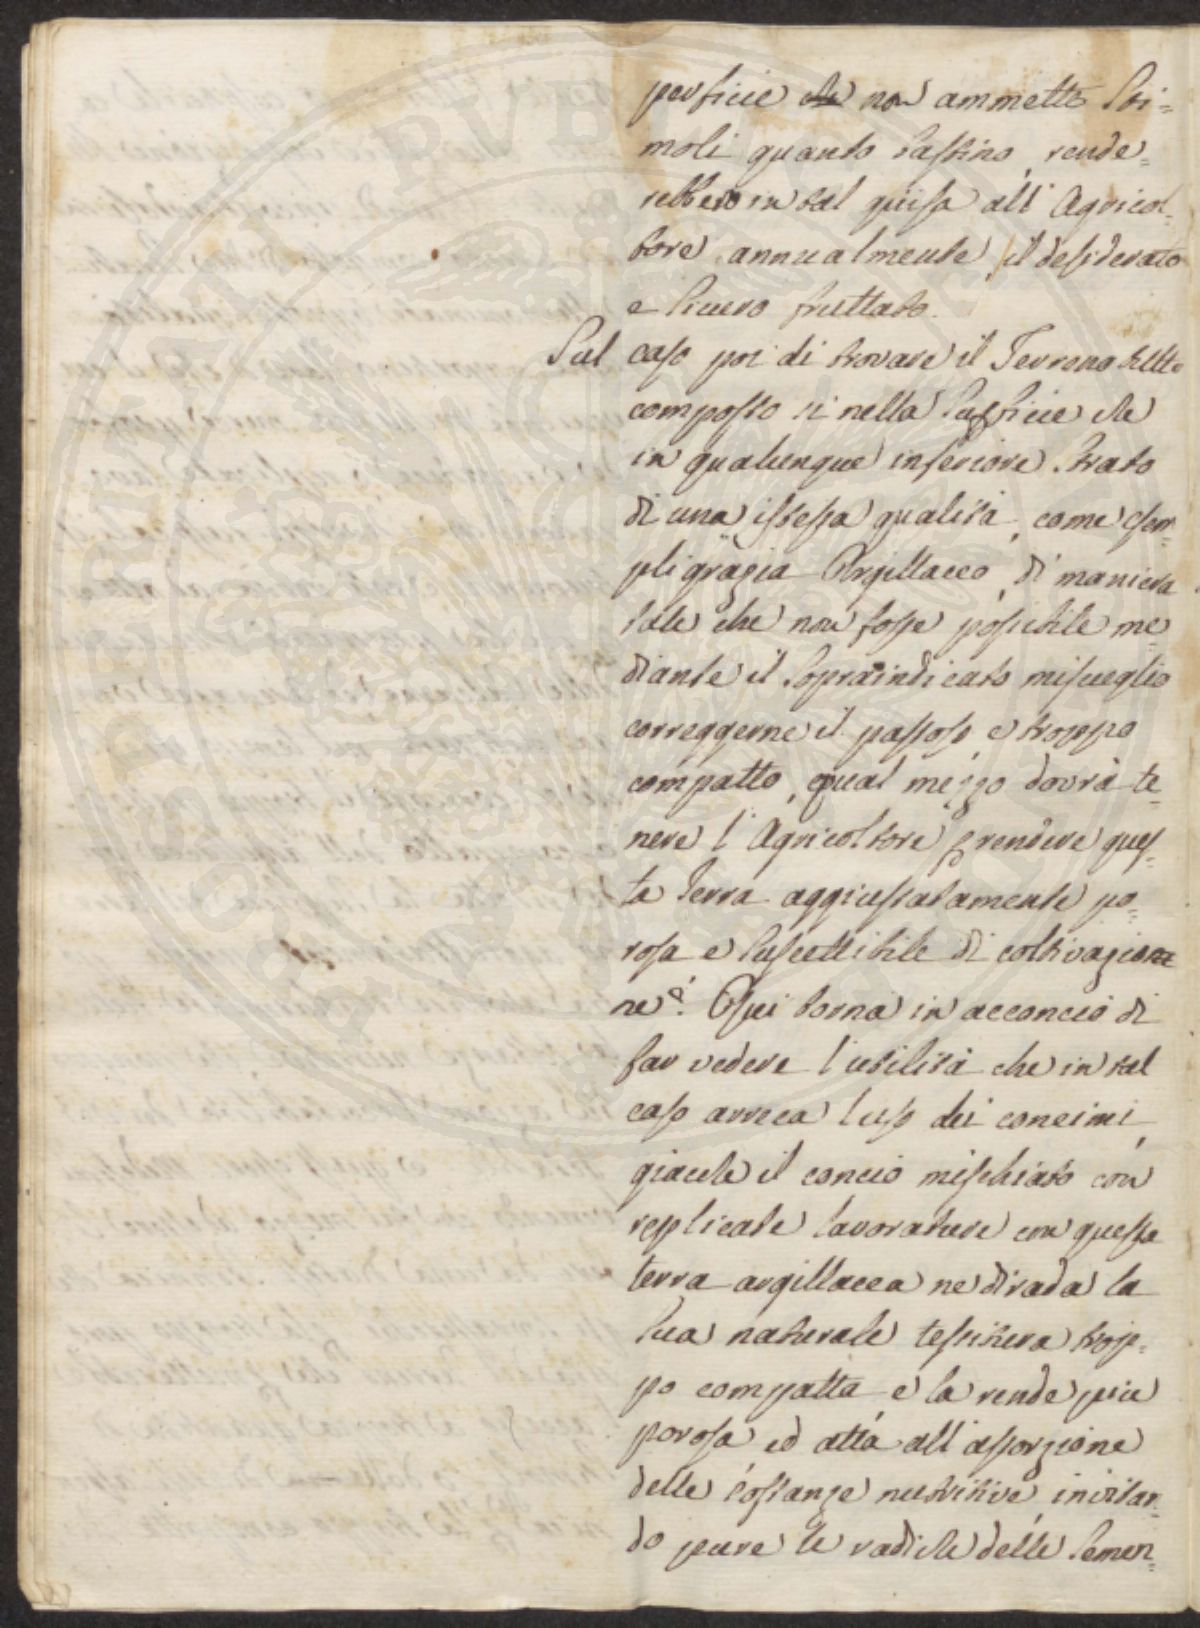 perficie che non ammette Sti=
moli quanto l'astino, rende=
rebbero in tal guisa all'Agricol=
tore annualmente il desiderato
e sicuro fruttato.
Sul caso poi di trovare il Terreno tutto
composto si nella Superficie che
in qualunque inferiore Strato
di una istessa qualità, come esem
pligrazia Argillacco, di maniera
tale che non fosse possibile me=
diante il Sopraindicato miscuglio
correggerne il passoso, e troppo
compatto, qual mezzo dovrà te=
nere l'Agricoltore p rendere ques=
ta Terra aggiustatamente po=
rosa e Suscettibile di coltivazione
ne? Qui torna in acconcio di
far vedere l'utilità che in tal
caso arreca l'uso dei concimi,
giacche il concio mischiato con
replicate lavorature con questa
terra argillacea ne dirada la
Sua naturale tessitura trop=
po compatta, e la rende piu
porosa, ed atta all'assorzione
delle Sostanze nutritive, invitan=
do pure le radiche delle Semen=